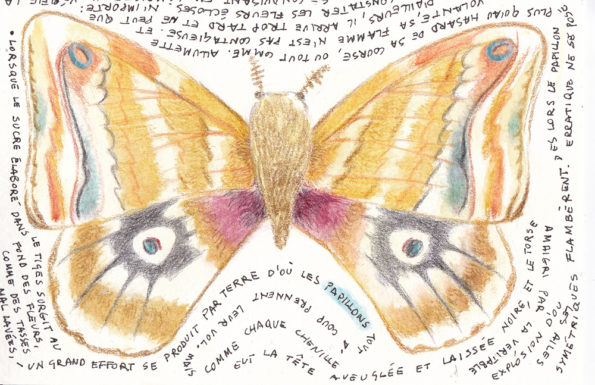 • LORSQUE LE SUCRE ÉLABORÉ DANS
LE TIGES SURGIT AU
FOND DES FLEURS,
COMME DES TASSES
MAL LAVÉES,
- UN GRAND EFFORT SE PRODUIT PAR TERRE D'OÙ LES PAPILLONS TOUT
À COUP PRENNENT LEUR VOL.
MAIS COMME CHAQUE CHENILLE
EUT LA TÊTE AVEUGLÉE ET LAISSÉE NOIRE, ET LE TORSE
AMAIGRI PAR LA VÉRITABLE
EXPLOSION D'OÙ
LES AILES
SYMÉTRIQUES FLAMBÈRENT.
DÈS LORS LE PAPILLON
ERRATIQUE NE SE POSE
PLUS QU'AU HASARD DE SA COURSE, OU TOUT COMME. ALLUMETTE
VOLANTE, SA FLAMME N'EST PAS CONTAGIEUSE. ET
D'AILLEURS, IL ARRIVE TROP TARD ET NE PEUT QUE
CONSTATER LES FLEURS ÉCLOSES. N'IMPORTE:
SE CONDUISANT